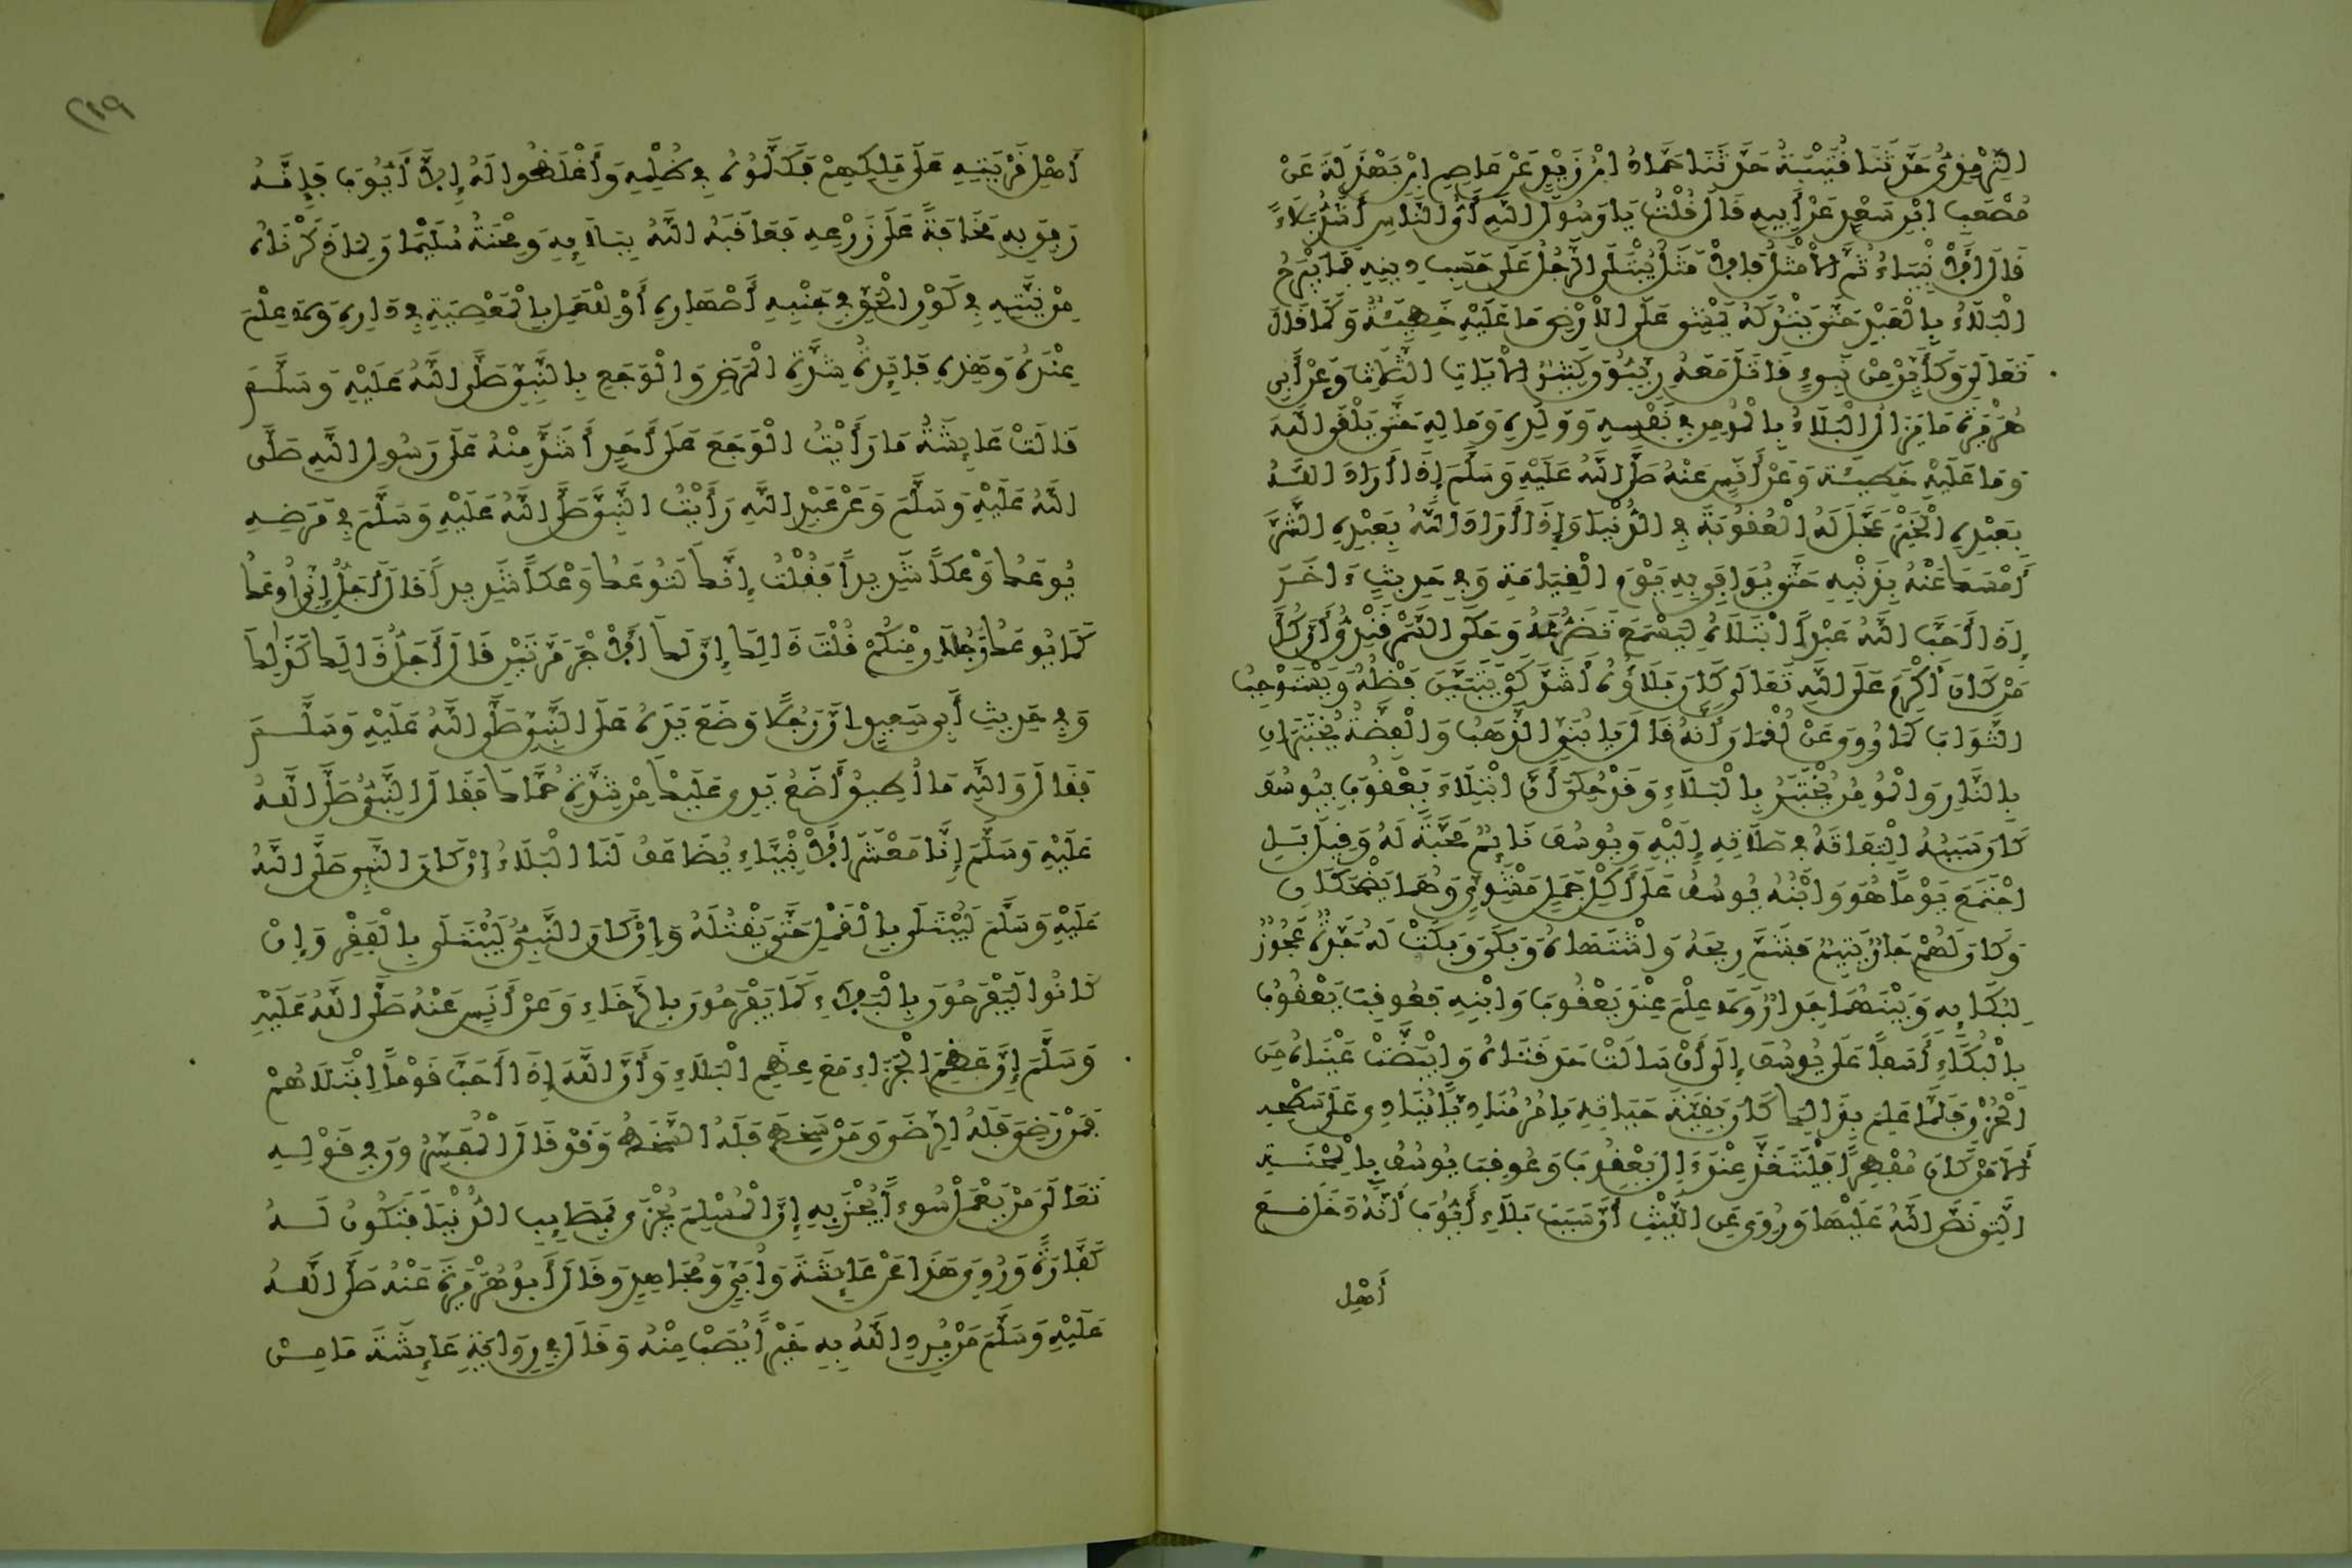 التِّرْمِذِيُّ حَدَّثَنَا قُتَيْبَةُ حَدَّثَنَا حَمَّادُ ابْنُ زَيْدٍ عَنْ عَاصِمِ ابْنِ بَهْدَلَةَ عَنْ
مُصْعَبِ ابْنِ سَعْدٍ عَنْ أَبِيهِ قَالَ قُلْتُ يَا رَسُولَ اللَّهِ أَيُّ النَّاسِ أَشَدُّ بَلَاءً
قَالَ الأَنْبِيَاءُ ثُمَّ الأَمْثَلُ فَالأَمْثَلُ يُبْتَلَى الرَّجُلُ عَلَى حَسَبِ دِينِهِ فَمَا يَبْرَحُ
الْبَلَاءُ بِالْعَبْدِ حَتَّى يَتْرُكَهُ يَمْشِي عَلَى الأَرْضِ مَا عَلَيْهِ خَطِيئَةٌ وَكَمَا قَالَ
تَعَالَى وَكَأَيِّنْ مِنْ نَبِيءٍ قَاتَلَ مَعَهُ رِبِّيُّونَ كَثِيرٌ الآيَاتِ الثَّلَاثَ وَعَنْ أَبِي
هُرَيْرَةَ مَا يَزَالُ الْبَلَاءُ بِالْمُومِنِ فِي نَفْسِهِ وَوَلَدِهِ وَمَالِهِ حَتَّى يَلْقَى اللَّهَ
وَمَا عَلَيْهِ خَطِيئَةٌ وَعَنْ أَنَسٍ عَنْهُ صَلَّى اللَّهُ عَلَيْهِ وَسَلَّمَ إِذَا أَرَادَ اللَّهُ
بِعَبْدِهِ الْخَيْرَ عَجَّلَ لَهُ الْعُقُوبَةَ فِي الدُّنْيَا وَإِذَا أَرَادَ اللَّهُ بِعَبْدِهِ الشَّرَّ
أَمْسَكَ عَنْهُ بِذَنْبِهِ حَتَّى يُوَافِيَ بِهِ يَوْمَ الْقِيَامَةِ وَفِي حَدِيثٍ ءَاخَرَ
إِذَا أَحَبَّ اللَّهُ عَبْداً ابْتَلَاهُ لِيَسْمَعَ تَضَرُّعَهُ وَحَكَى السَّمَرْقَنْدِيُّ أَنَّ كُلَّ
مَنْ كَانَ أَكْرَمَ عَلَى اللَّهِ تَعَالَى كَانَ بَلَاؤُهُ أَشَدَّ كَيْ يَتَبَيَّنَ فَضْلُهُ وَيَسْتَوْجِبَ
الثَّوَابَ كَمَا رُوِيَ عَنْ لُقْمَانَ أَنَّهُ قَالَ يَا بُنَيَّ الذَّهَبُ وَالْفِضَّةُ يُخْتَبَرَانِ
بِالنَّارِ وَالْمُومِنُ يُخْتَبَرُ بِالْبَلَاءِ وَقَدْ حُكِيَ أَنَّ ابْتِلَاءَ يَعْقُوبَ بِيُوسُفَ
كَانَ سَبَبُهُ الْتِفَاتَهُ فِي صَلَاتِهِ إِلَيْهِ وَيُوسُفُ نَائِمٌ مَحَبَّةً لَهُ وَقِيلَ بَلِ
اجْتَمَعَ يَوْماً هُوَ وَابْنُهُ يُوسُفُ عَلَى أَكْلِ حَمَلٍ مَشْوِيٍّ وَهُمَا يَضْحَكَانِ
وَكَانَ لَهُمْ جَارٌ يَتِيمٌ فَشَمَّ رِيحَهُ وَاشْتَهَاهُ وَبَكَى وَبَكَتْ لَهُ جَدَّةٌ عَجُوزٌ
لِبُكَائِهِ وَبَيْنَهُمَا جِدَارٌ وَلَا عِلْمَ عِنْدَ يَعْقُوبَ وَابْنِهِ فَعُوقِبَ يَعْقُوبُ
بِالْبُكَاءِ أَسَفاً عَلَى يُوسُفَ إِلَى أَنْ سَالَتْ حَدَقَتَاهُ وَابْيَضَّتْ عَيْنَاهُ مِنَ
الْحُزْنِ فَلَمَّا عَلِمَ بِذَالِكَ كَانَ بَقِيَّةَ حَيَاتِهِ يَامُرُ مُنَادِياً يُنَادِي عَلَى سَطْحِهِ
أَلَا مَنْ كَانَ مُفْطِراً فَلْيَتَغَدَّ عِنْدَ ءَالِ يَعْقُوبَ وَعُوقِبَ يُوسُفُ بِالْمِحْنَةِ
الَّتِي نَصَّ اللَّهُ عَلَيْهَا وَرُوِيَ عَنِ اللَّيْثِ أَنَّ سَبَبَ بَلَاءِ أَيُّوبَ أَنَّهُ دَخَلَ مَعَ
أَهْلِ
٢١٩
أَهْلِ قَرْيَتِهِ عَلَى مَلِكِهِمْ فَكَلَّمُوهُ فِي ظُلْمِهِ وَأَغْلَظُوا لَهُ إِلَّا أَيُّوبَ فَإِنَّهُ
رَفِقَ بِهِ مَخَافَةً عَلَى زَرْعِهِ فَعَاقَبَهُ اللَّهُ بِبَلَائِهِ وَمِحْنَةُ سُلَيْمَانَ لِمَا ذَكَرْنَاهُ
مِنْ نِيَّتِهِ فِي كَوْنِ الْحَقِّ فِي جَنْبِهِ أَصْهَارِهِ أَوْ لِلْعَمَلِ بِالْمَعْصِيَةِ فِي دَارِهِ وَلَا عِلْمَ
عِنْدَهُ وَهَذِهِ فَائِدَةُ شِدَّةِ الْمَرَضِ وَالْوَجَعِ بِالنَّبِيِّ صَلَّى اللَّهُ عَلَيْهِ وَسَلَّمَ
قَالَتْ عَائِشَةُ مَا رَأَيْتُ الْوَجَعَ عَلَى أَحَدٍ أَشَدَّ مِنْهُ عَلَى رَسُولِ اللَّهِ صَلَّى
اللَّهُ عَلَيْهِ وَسَلَّمَ وَعَنْ عَبْدِ اللَّهِ رَأَيْتُ النَّبِيَّ صَلَّى اللَّهُ عَلَيْهِ وَسَلَّمَ فِي مَرَضِهِ
يُوعَكُ وَعْكاً شَدِيداً فَقُلْتُ إِنَّكَ لَتُوعَكُ وَعْكاً شَدِيداً قَالَ أَجَلْ إِنِّي أُوعَكُ
كَمَا يُوعَكُ رَجُلَانِ مِنْكُمْ قُلْتُ ذَالِكَ إِنَّ لَكَ الأَجْرَ مَرَّتَيْنِ قَالَ أَجَلْ ذَالِكَ كَذَلِكَ
وَفِي حَدِيثِ أَبِي سَعِيدٍ أَنَّ رَجُلًا وَضَعَ يَدَهُ عَلَى النَّبِيِّ صَلَّى اللَّهُ عَلَيْهِ وَسَلَّمَ
فَقَالَ وَاللَّهِ مَا أُطِيقُ أَضَعُ يَدِي عَلَيْكَ مِنْ شِدَّةِ حُمَّاكَ فَقَالَ النَّبِيُّ صَلَّى اللَّهُ
عَلَيْهِ وَسَلَّمَ إِنَّا مَعْشَرَ الأَنْبِيَاءِ يُضَاعَفُ لَنَا الْبَلَاءُ إِنْ كَانَ النَّبِيُّ صَلَّى اللَّهُ
عَلَيْهِ وَسَلَّمَ لَيُبْتَلَى بِالْقَمْلِ حَتَّى يَقْتُلَهُ وَإِنْ كَانَ النَّبِيُّ لَيُبْتَلَى بِالْفَقْرِ وَإِنْ
كَانُوا لَيَفْرَحُونَ بِالْبَلَاءِ كَمَا يَفْرَحُونَ بِالرَّخَاءِ وَعَنْ أَنَسٍ عَنْهُ صَلَّى اللَّهُ عَلَيْهِ
وَسَلَّمَ إِنَّ عَظِيمَ الْجَزَاءِ مَعَ عَظِيمِ الْبَلَاءِ وَأَنَّ اللَّهَ إِذَا أَحَبَّ قَوْماً ابْتَلَاهُمْ
فَمَنْ رَضِيَ فَلَهُ الرِّضَى وَمَنْ سَخِطَ فَلَهُ السَّخَطُ وَقَدْ قَالَ الْمُفَسِّرُونَ فِي قَوْلِهِ
تَعَالَى مَنْ يَعْمَلْ سُوءاً يُجْزَ بِهِ إِنَّ الْمُسْلِمَ يُجْزَى بِمَصَائِبِ الدُّنْيَا فَتَكُونُ لَهُ
كَفَّارَةً وَرُوِيَ هَذَا عَنْ عَائِشَةَ وَأُبَيٍّ وَمُجَاهِدٍ وَقَالَ أَبُو هُرَيْرَةَ عَنْهُ صَلَّى اللَّهُ
عَلَيْهِ وَسَلَّمَ مَنْ يُرِدِ اللَّهُ بِهِ خَيْراً يُصَبْ مِنْهُ وَقَالَ فِي رِوَايَةِ عَائِشَةَ مَا مِنْ